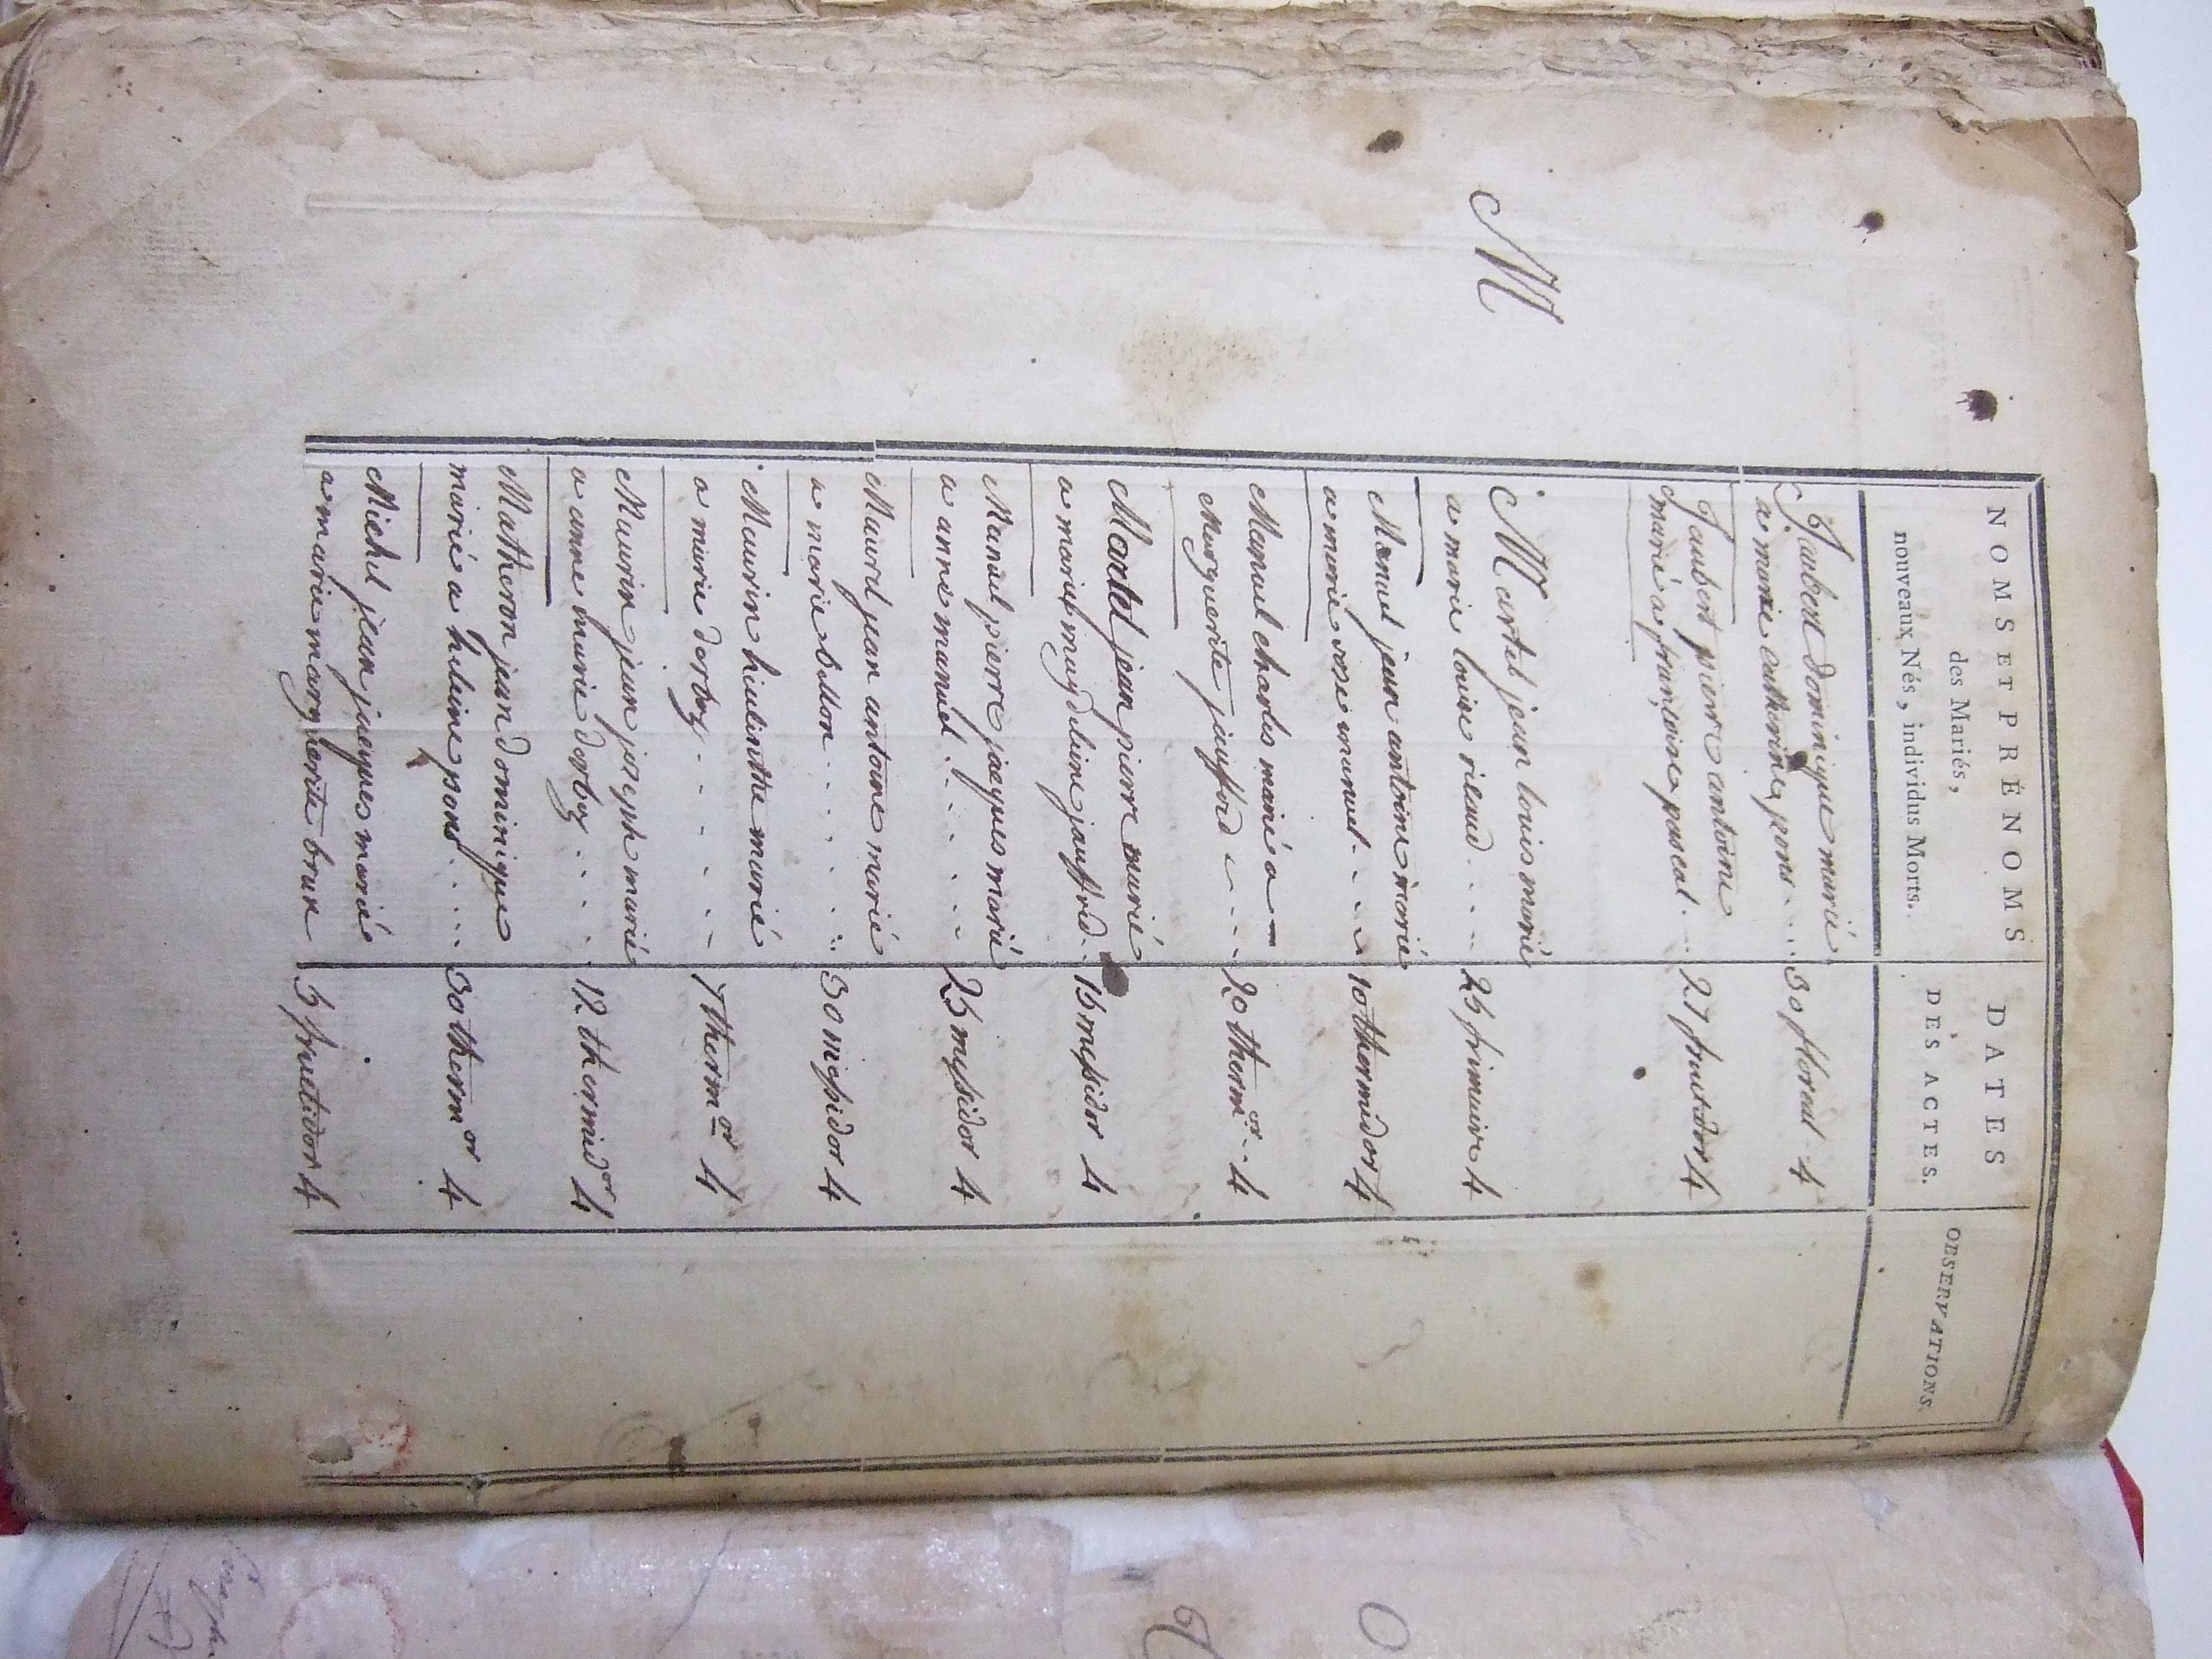 NOMS ET PRÉNOMS
des Mariés,
nouveaux Nés, individus Morts.
DATES
DES ACTES.
OBSERVATIONS.
Jaubert dominique marié
a marie catherine pons .... 30 floreal 4
Jaubert pierre antoine
marié a françoise pascal ... 27 fructidor 4
M
Martel jean louis marié
a marie louise ricaud .... 25 frimaire 4
Manuel jean antoine marié
a marie rose manuel ... 10 thermidor 4
Manuel charles marié a —
Marguerite jauffrid .... 20 therm.or 4
Martel jean pierre marié
a marie magdeleine jauffrid .. 15 messidor 4
Manuel pierre jacques marié
a anne manuel ..... 25 messidor 4
Maurel jean antoine marié
a marie bellon ..... 30 messidor 4
Maurin hiacinthe marié
a marie dorboy ..... 7 therm.or 4
Maurin jean joseph marié
a anne marie dorboy .... 12 thermidor 4
Matheron jean dominique
marié a heleine pons .... 30 therm.or 4
Michel jean jacques marié
a marie marguerite brun 5 fructidor 4